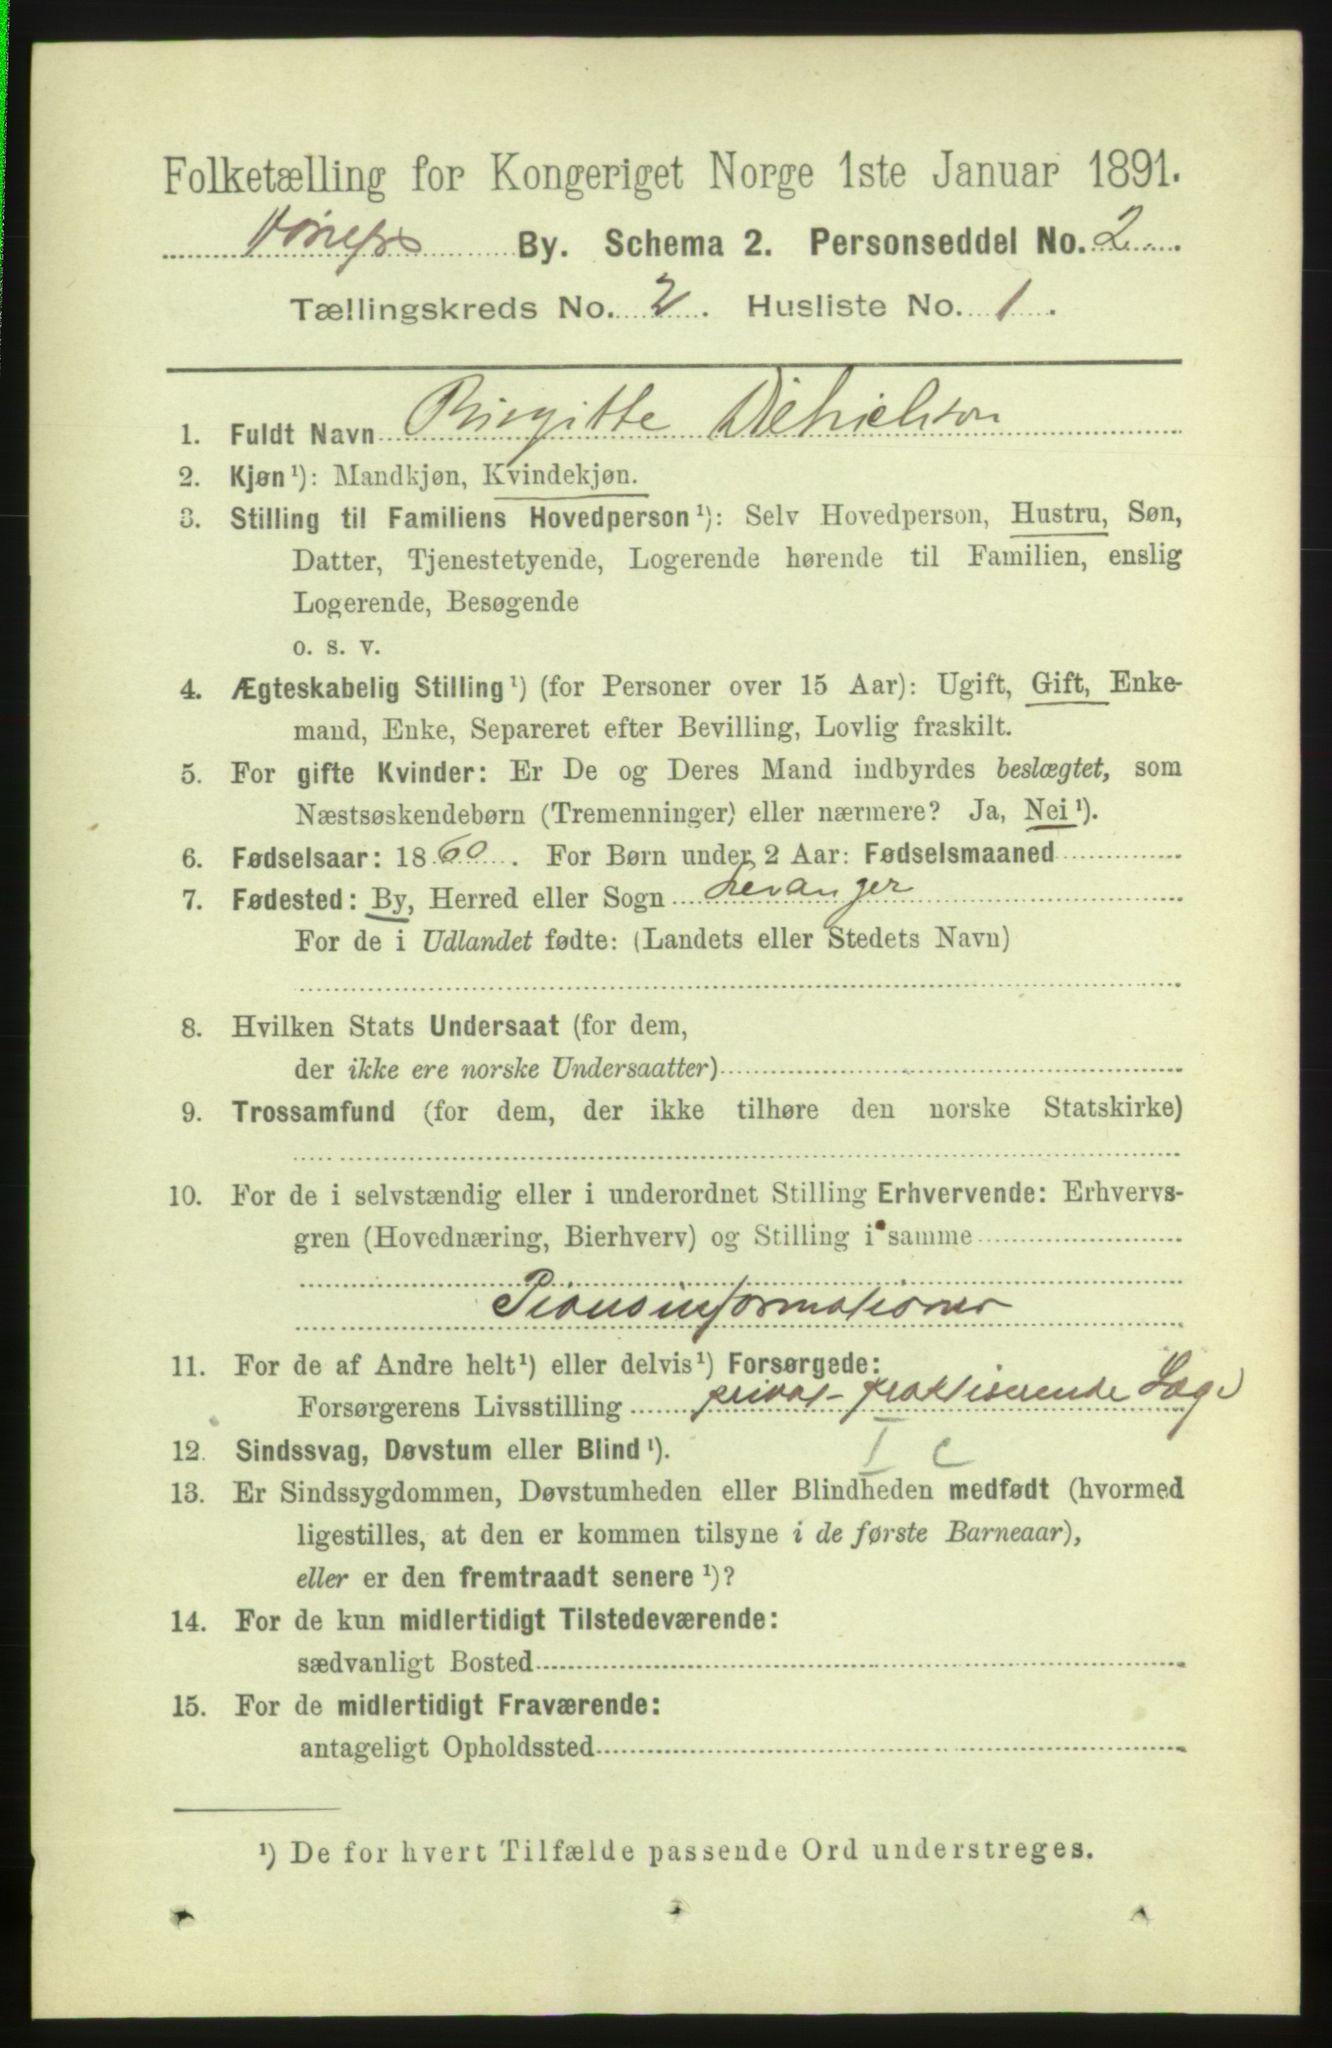 Folketælling for Kongeriget Norge 1ste Januar 1891.
Hønefos By. Schema 2. Personseddel No. 2
Tællingskreds No. 2. Husliste No. 1.
1. Fuldt Navn Birgitte Dietrichson
2. Kjøn ¹): Mandkjøn, Kvindekjøn.
3. Stilling til Familiens Hovedperson ¹): Selv Hovedperson, Hustru, Søn,
Datter, Tjenestetyende, Logerende hørende til Familien, enslig
Logerende, Besøgende
o. s. v.
4. Ægteskabelig Stilling ¹) (for Personer over 15 Aar): Ugift, Gift, Enke-
mand, Enke, Separeret efter Bevilling, Lovlig fraskilt.
5. For gifte Kvinder: Er De og Deres Mand indbyrdes beslægtet, som
Næstsøskendebørn (Tremenninger) eller nærmere? Ja, Nei ¹).
6. Fødselsaar: 1860. For Børn under 2 Aar: Fødselsmaaned
7. Fødested: By, Herred eller Sogn Levanger
For de i Udlandet fødte: (Landets eller Stedets Navn)
8. Hvilken Stats Undersaat (for dem,
der ikke ere norske Undersaatter)
9. Trossamfund (for dem, der ikke tilhøre den norske Statskirke)
10. For de i selvstændig eller i underordnet Stilling Erhvervende: Erhvervs-
gren (Hovednæring, Bierhverv) og Stilling i samme
Pianoinformationer
11. For de af Andre helt ¹) eller delvis ¹) Forsørgede:
Forsørgerens Livsstilling privat-praktiserende Læge
I c
12. Sindssvag, Døvstum eller Blind ¹).
13. Er Sindssygdommen, Døvstumheden eller Blindheden medfødt (hvormed
ligestilles, at den er kommen tilsyne i de første Barneaar),
eller er den fremtraadt senere ¹)?
14. For de kun midlertidigt Tilstedeværende:
sædvanligt Bosted
15. For de midlertidigt Fraværende:
antageligt Opholdssted
¹) De for hvert Tilfælde passende Ord understreges.